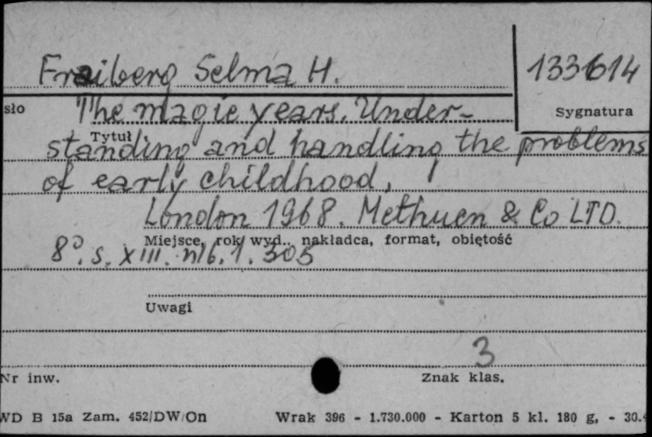 Fraiberg Selma H.
133614
sło
The magic years. Under-
Sygnatura
Tytuł
standing and handling the problems
of early childhood,
London 1968. Methuen & Co LTD.
Miejsce, rok wyd., nakładca, format, objętość
8°. s. XIII. nlb. 1. 305
Uwagi
3
Nr inw.
Znak klas.
WD B 15a Zam. 452/DW/On
Wrak 396 - 1.730.000 - Karton 5 kl. 180 g. - 30.